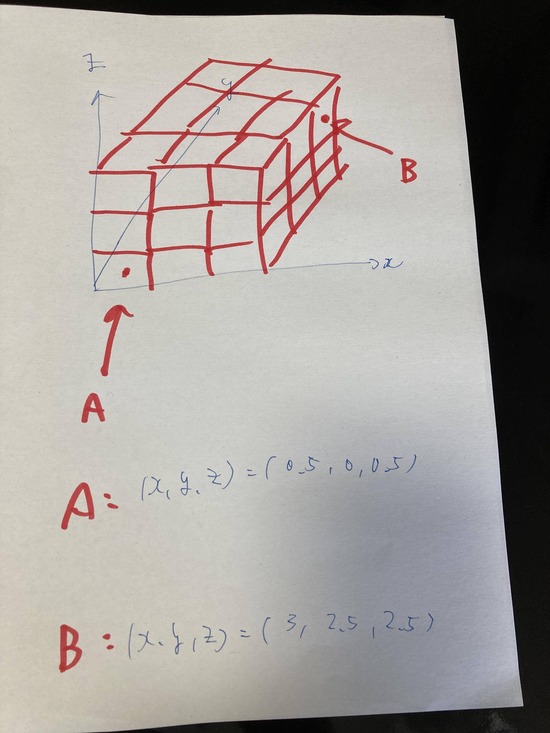 z
y
B
x
A
A: (x, y, z) = (0.5, 0, 0.5)
B: (x, y, z) = (3, 2.5, 2.5)